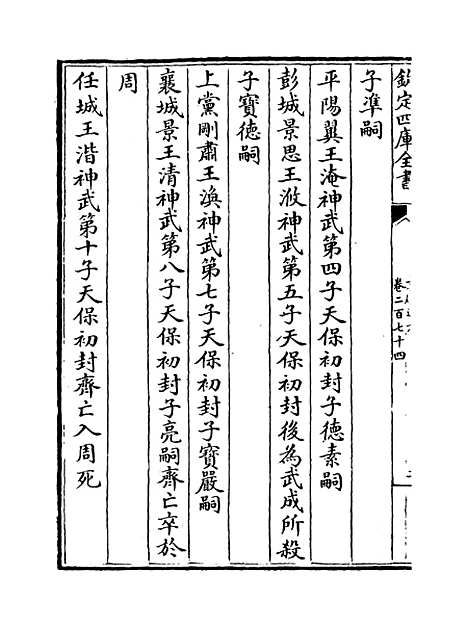 欽定四庫全書
卷二百七十四
子準嗣
平陽翼王淹神武第四子天保初封子德素嗣
彭城景思王浟神武第五子天保初封後為武成所殺
子寶德嗣
上黨剛肅王渙神武第七子天保初封子寶嚴嗣
襄城景王清神武第八子天保初封子亮嗣齊亡卒於
周
任城王湝神武第十子天保初封齊亡入周死